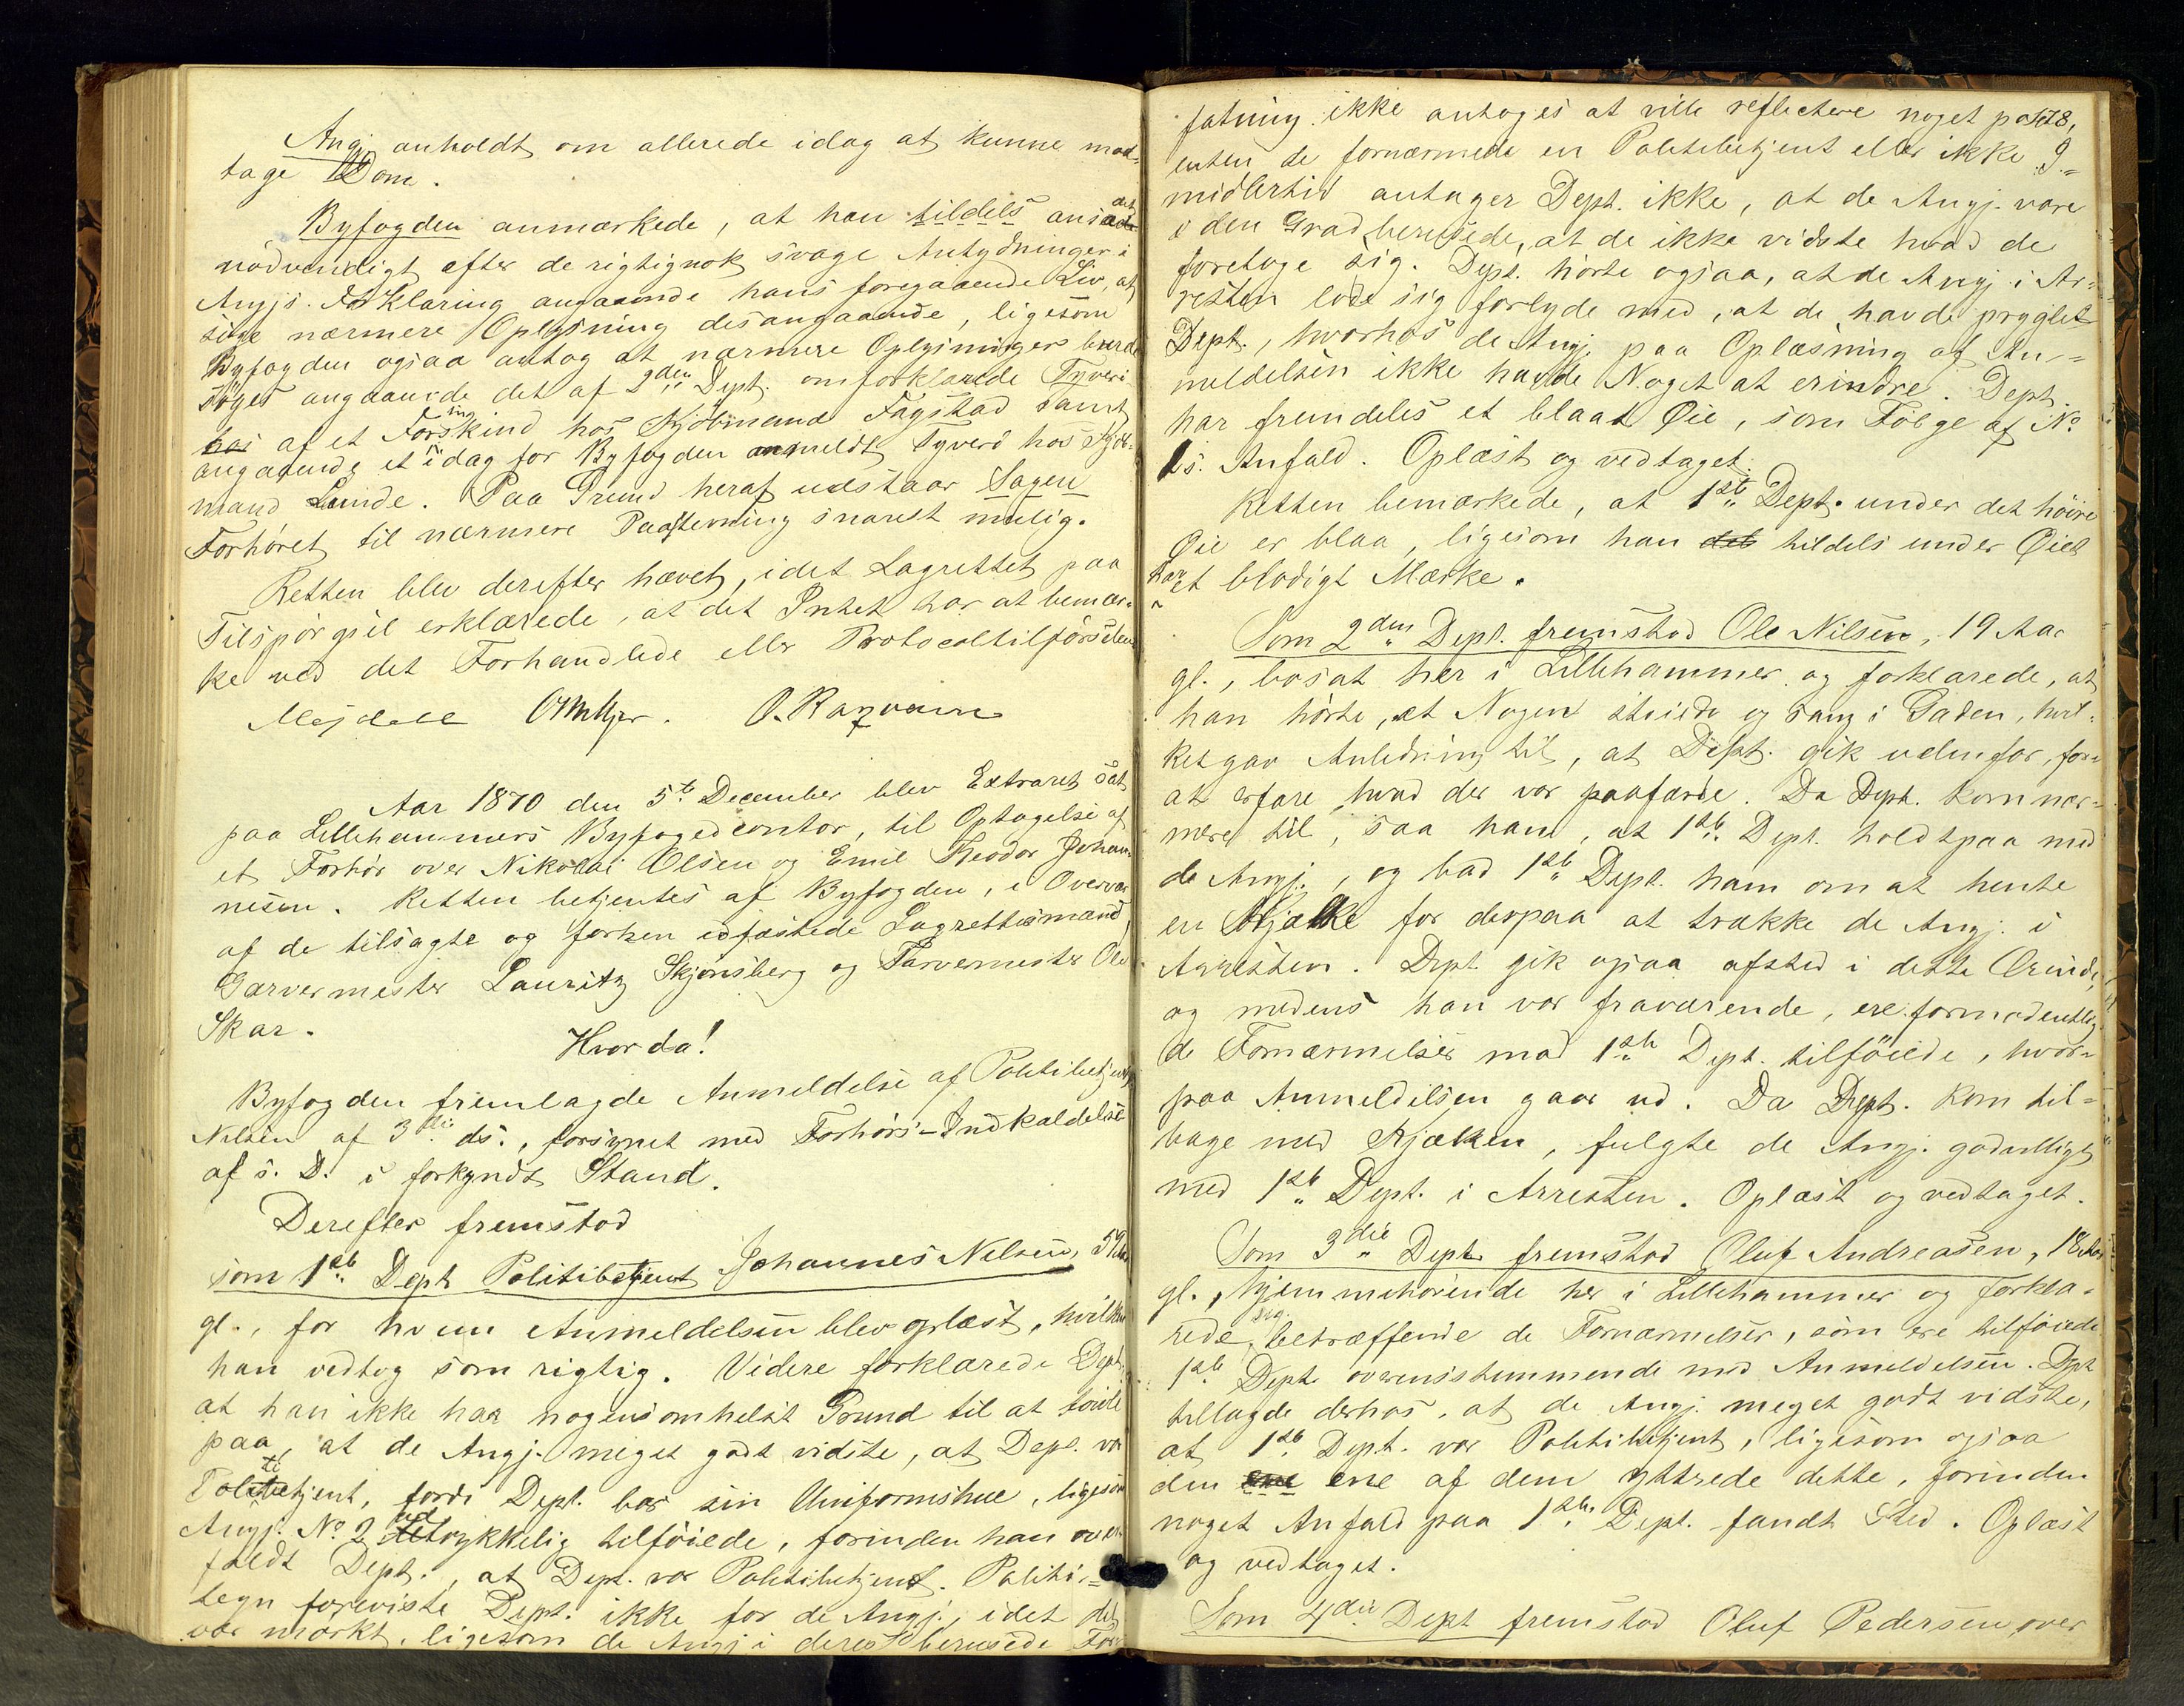 Angj. anholdt om allerede idag at kunne mod-
tage Dom.
Byfogden anmærkede, at han tildels ansaa det
nødvendigt efter de rigtignok svage Antydninger i
Angjs. Forklaring angaaende hans foregaaende Liv, at
søge nærmere Oplysning desangaaende, ligesom
Byfogden ogsaa antog at nærmere Oplysninger burde
søges angaaende det af 2den Dept. omforklarede Tyveri
hos af et Forskind hos Kjøbmand Fagstad samt
angaaende et idag for Byfogden anmeldt Tyveri hos Kjøb-
mand Lunde. Paa Grund heraf udstaar Sagen
Forhøret til nærmere Paastevning snarest mulig.
Retten blev derefter hævet, idet Lagrettet paa
Tilspørgsel erklærede, at det Intet har at bemær-
ke ved det Forhandlede eller Protocoltilførselen
Mejdell O. Ragvain
Aar 1870 den 5te December blev Extraret sat
paa Lillehammers Byfogedcontor, til Optagelse af
et Forhør over Nikolai Olsen og Emil Theodor Johan-
nesen. Retten betjentes af Byfogden, i Overvær
af de tilsagte og forhen edfæstede Lagrettesmænd,
Garvermester Lauritz Skjønsberg og Farvermester Ole
Skar.
Hvorda!
Byfogden fremlagde Anmeldelse af Politibetjent
Nilsen af 3die ds., forsynet med Forhørs-Indkaldelse
af s. D. i forkyndt Stand.
Derefter fremstod
som 1ste Dept Politibetjent Johannes Nilsen, 59 Aar
gl., for hvem Anmeldelsen blev oplæst, hvilken
han vedtog som rigtig. Videre forklarede Dept.
at han ikke har nogensomhelst Grund til at tvivle
paa, at de Angj. meget godt vidste, at Dept. var
Politibetjent, fordi Dept. bar sin Uniformshue, ligesom
Angj. No. 2 udtrykkelig tilføiede, forinden han over-
faldt Dept., at Dept. var Politibetjent. Politi-
tegn foreviste Dept. ikke for de Angj., idet det
var mørkt, ligesom de Angj i deres berusede For-
fatning ikke antoges at ville reflectere noget paa det,
enten de fornærmede en Politibetjent eller ikke. I-
midlertid antager Dept. ikke, at de Angj. vare
i den Grad berusede, at de ikke vidste hvad de
foretoge sig. Dept. hørte ogsaa, at de Angj. i Ar-
resten lode sig forlyde med, at de havde pryglet
Dept., hvorhos de Angj. paa Oplæsning af An-
meldelsen ikke havde Noget at erindre. Dept.
har fremdeles et blaat Øie, som Følge af No
1s. Anfald. Oplæst og vedtaget.
Retten bemærkede, at 1ste Dept. under det høire
Øie er blaa, ligesom han det tildels under Øiet
har et blodigt Mærke.
Som 2den Dept. fremstod Ole Nilsen, 19 Aar
gl., bosat her i Lillehammer og forklarede, at
han hørte, at Nogen støiede og sang i Gaden, hvil-
ket gav Anledning til, at Dept. gik udenfor, for
at erfare, hvad der var paafærde. Da Dept. kom nær-
mere til, saa han, at 1ste Dept. holdt paa med
de Angj., og bad 1ste Dept. ham om at hente
en Kjælke for derpaa at trække de Angj. i
Arresten. Dept. gik ogsaa afsted i dette Ærinde,
og medens han var fraværende, ere formodentlig
de Fornærmelser mod 1ste Dept. tilføiede, hvor-
paa Anmeldelsen gaar ud. Da Dept. kom til-
bage med Kjælken, fulgte de Angj. godvilligt
med 1ste Dept. i Arresten. Oplæst og vedtaget.
Som 3die Dept. fremstod Oluf Andreasen, 18 Aar
gl., hjemmehørende her i Lillehammer og forkla-
rede sig betræffende de Fornærmelser, som ere tilføiede
1ste Dept. overensstemmende med Anmeldelsen. Dept
tillagde derhos, at de Angj. meget godt vidste,
at 1ste Dept. var Politibetjent, ligesom ogsaa
den ene ene af dem yttrede dette, forinden
noget Anfald paa 1ste Dept. fandt Sted. Oplæst
og vedtaget.
Som 4die Dept fremstod Oluf Pedersen, over